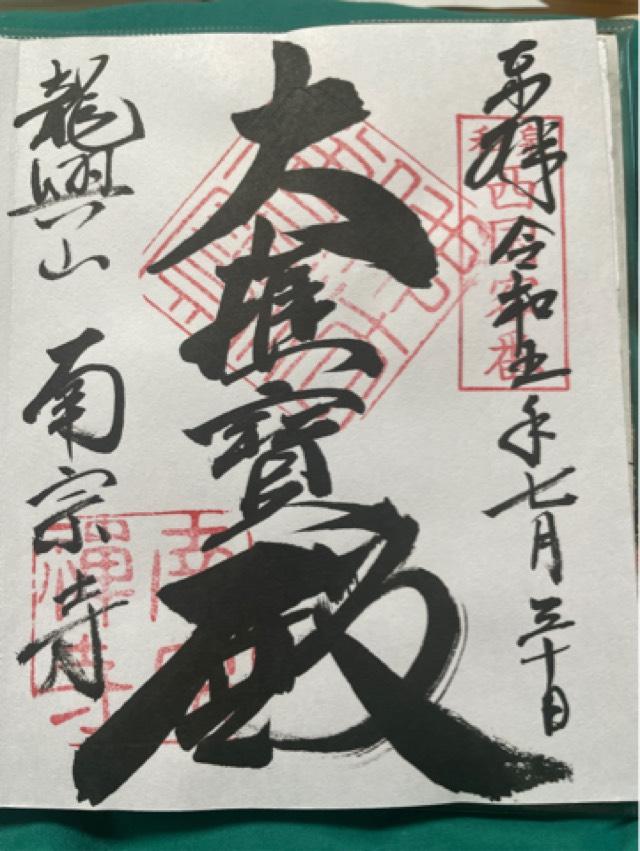 奉拝 令和五年七月三十日
大雄寶殿
龍興山 南宗寺
南宗
禪寺